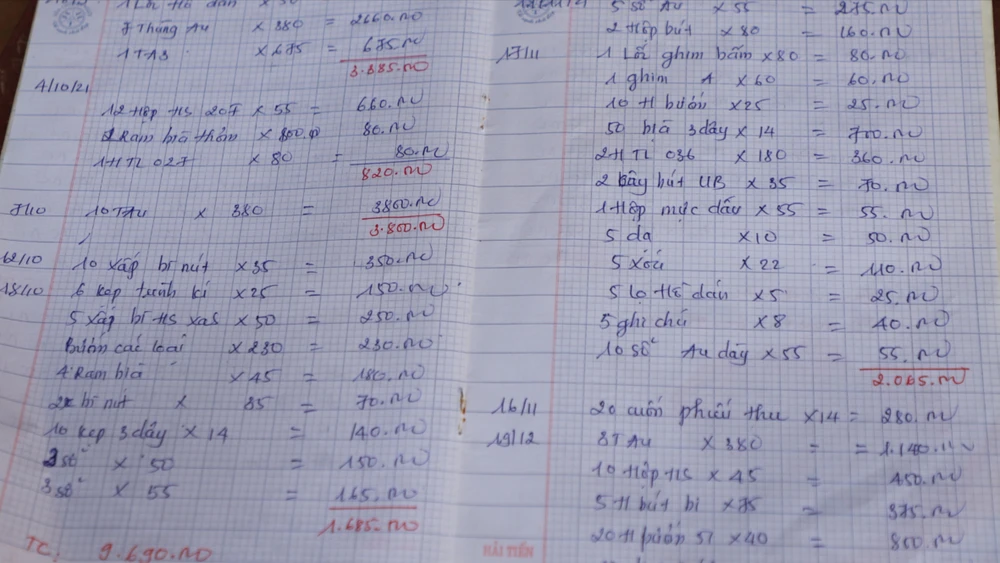 7 Thùng Au × 380 = 2660.00
1 TA3 × 675 = 675.00
3.385.00
4/10/21
12 Hộp HS 20F × 55 = 660.00
Ram bìa thơm × 80
80.00
1 H TL 027 × 80 = 80.00
820.00
7/10 10 TAu × 380 = 3800.00
3.800.00
12/10 10 xấp bì nút × 35 = 350.00
18/10 6 kẹp trình kí × 25 = 150.00
5 xấp bì HS xas × 50 = 250.00
Bướm các loại × 230 = 230.00
4 Ram bìa × 45 = 180.00
2x bì nút × 35 = 70.00
10 kẹp 3 dây × 14 = 140.00
3 sổ × 50 = 150.00
3 sổ × 55 = 165.00
1.685.00
TC: 9.690.00
5 sổ Au × 55 = 275.00
2 Hộp bút × 80 = 160.00
17/11 1 Lố ghim bấm × 80 = 80.00
1 ghim A × 60 = 60.00
10 H bướm × 25 = 25.00
50 bìa 3 dây × 14 = 700.00
2 H TL 036 × 180 = 360.00
2 cây bút UB × 35 = 70.00
1 Hộp mực dấu × 55 = 55.00
5 dạ × 10 = 50.00
5 xóa × 22 = 110.00
5 lọ Hồ dán × 5 = 25.00
5 ghi chú × 8 = 40.00
10 sổ Au dày × 55 = 55.00
2.065.00
16/11 20 cuốn phiếu thu × 14 = 280.00
19/12 3 TAu × 380 = 1.140.00
10 Hộp HS × 45 = 450.00
5 H bút bi × 75 = 375.00
20 H bướm 51 × 40 = 800.00
HẢI TIẾN